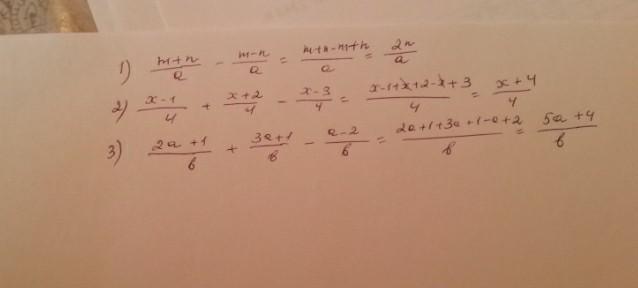 1) (m+n)/a - (m-n)/a = (m+n-m+n)/a = 2n/a
2) (x-1)/4 + (x+2)/4 - (x-3)/4 = (x-1+x+2-x+3)/4 = (x+4)/4
3) (2a+1)/b + (3a+1)/b - (a-2)/b = (2a+1+3a+1-a+2)/b = (5a+4)/b